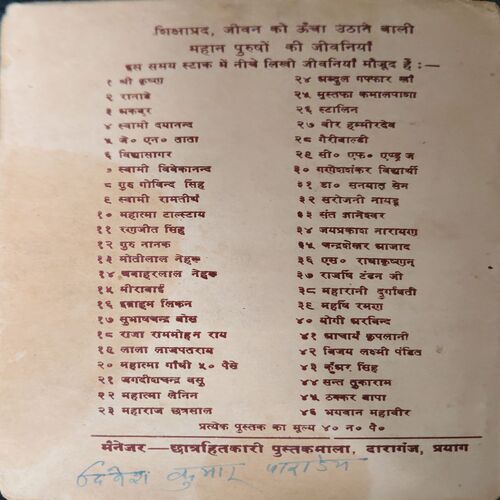 शिक्षाप्रद, जीवन को ऊँचा उठाने वाली
महान पुरुषों की जीवनियाँ
इस समय स्टाक में नीचे लिखी जीवनियाँ मौजूद हैं :—
१ श्री कृष्ण
२ रानाडे
३ अकबर
४ स्वामी दयानन्द
५ जे० एन० ताता
६ विद्यासागर
७ स्वामी विवेकानन्द
८ गुरु गोविन्द सिंह
९ स्वामी रामतीर्थ
१० महात्मा टाल्स्टाय
११ रणजीत सिंह
१२ गुरु नानक
१३ मोतीलाल नेहरू
१४ जवाहरलाल नेहरू
१५ मीराबाई
१६ इब्राहम लिंकन
१७ सुभाषचन्द्र बोस
१८ राजा राममोहन राय
१९ लाला लाजपतराय
२० महात्मा गाँधी ५० पैसे
२१ जगदीशचन्द्र बसु
२२ महात्मा लेनिन
२३ महाराज छत्रसाल
२४ अब्दुल गफ्फार खाँ
२५ मुस्तफा कमालपाशा
२६ स्टालिन
२७ वीर हम्मीरदेव
२८ गैरीबाल्डी
२९ सी० एफ० एण्ड्रूज
३० गणेशशंकर विद्यार्थी
३१ डा० सनयात सेन
३२ सरोजनी नायडू
३३ संत ज्ञानेश्वर
३४ जयप्रकाश नारायण
३५ चन्द्रशेखर आजाद
३६ एस० राधाकृष्णन्
३७ राजर्षि टंडन जी
३८ महारानी दुर्गावती
३९ महर्षि रमण
४० योगी अरविन्द
४१ आचार्य कृपलानी
४२ विजय लक्ष्मी पंडित
४३ कुँअर सिंह
४४ सन्त तुकाराम
४५ ठक्कर बापा
४६ भगवान महावीर
प्रत्येक पुस्तक का मूल्य ४० न० पै०
मैनेजर—छात्रहितकारी पुस्तकमाला, दारागंज, प्रयाग
कुमार पाण्डेय